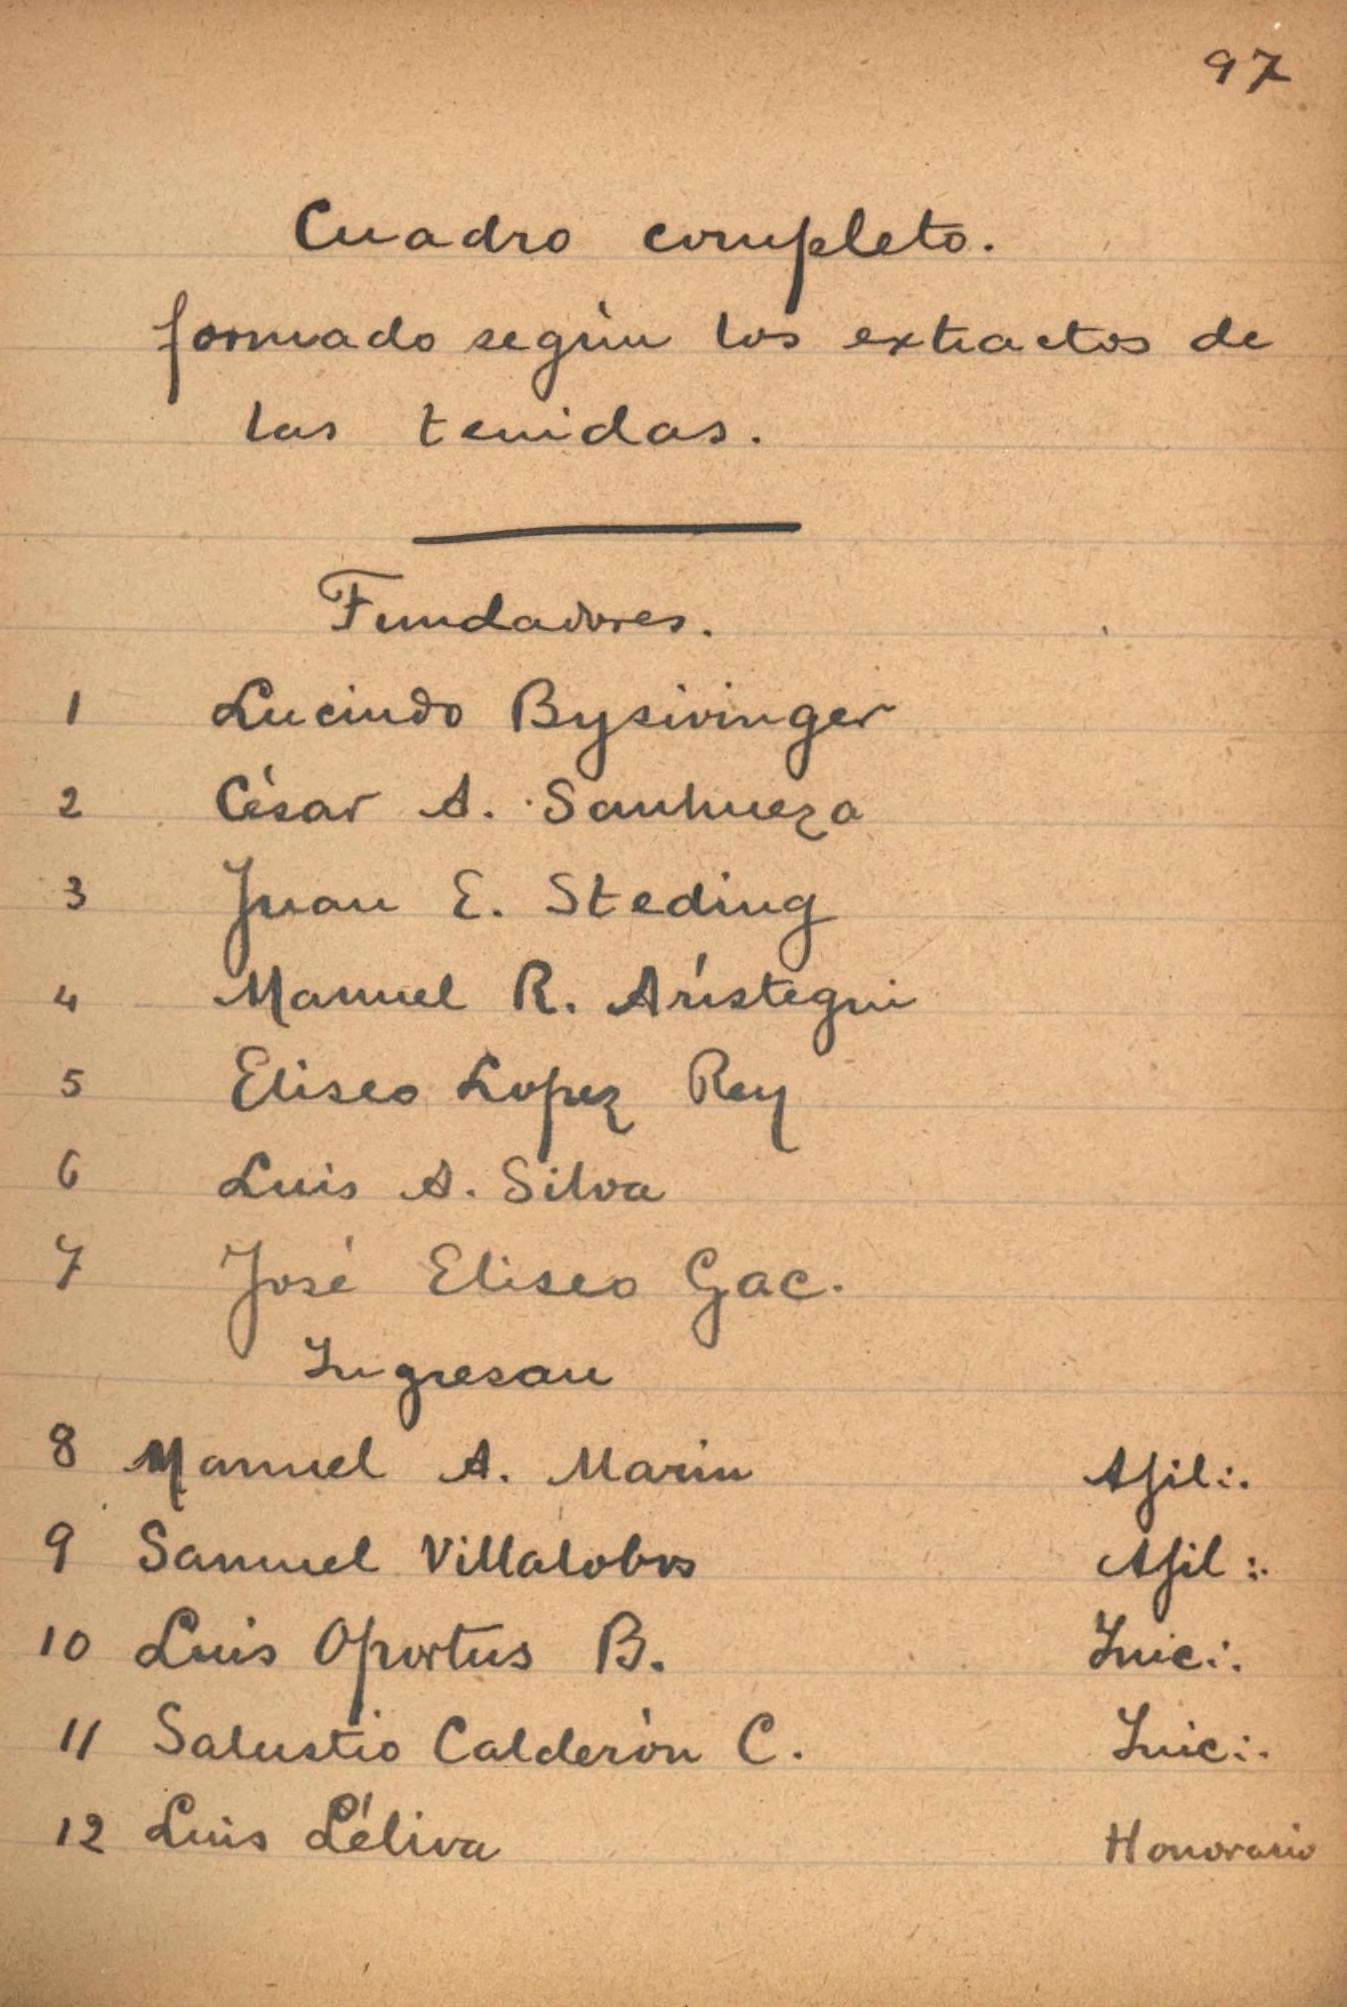 97
Cuadro completo.
formado según los extractos de
las tenidas.
Fundadores.
1 Lucindo Bysivinger
2 César A. Sanhueza
3 Juan E. Steding
4 Manuel R. Arístegui
5 Eliseo Lopez Rey
6 Luis A. Silva
7 José Eliseo Gac.
Ingresan
8 Manuel A. Marin Afil∴
9 Samuel Villalobos Afil∴
10 Luis Oportus B. Inic∴
11 Salustio Calderón C. Inic∴
12 Luis Léliva Honorario